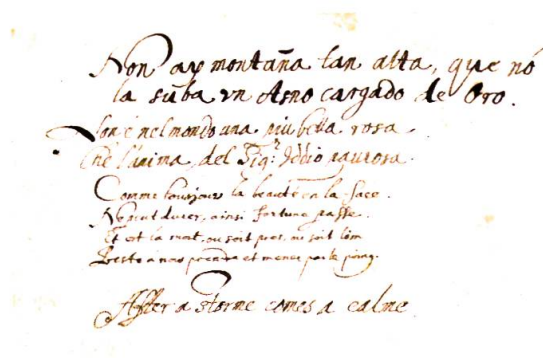 Non ay montaña tan alta, que nó
la suba un Asno cargado de Oro.
Non é nel mondo una piu bella rosa
Ché l'anima, del Sig.r Iddio paurosa.
Comme tousjours la beauté en la face.
Ne peut durer, ainsi fortune passe.
Et est la mort, ou soit pres, ou soit loin
Preste a nous prendre et mener par le poing.
After a storme comes a calme.